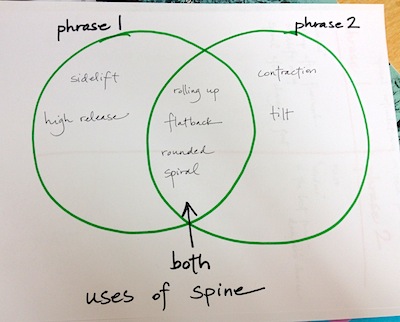 phrase 1
phrase 2
sidelift
high release
rolling up
flatback
rounded
spiral
contraction
tilt
both
uses of spine